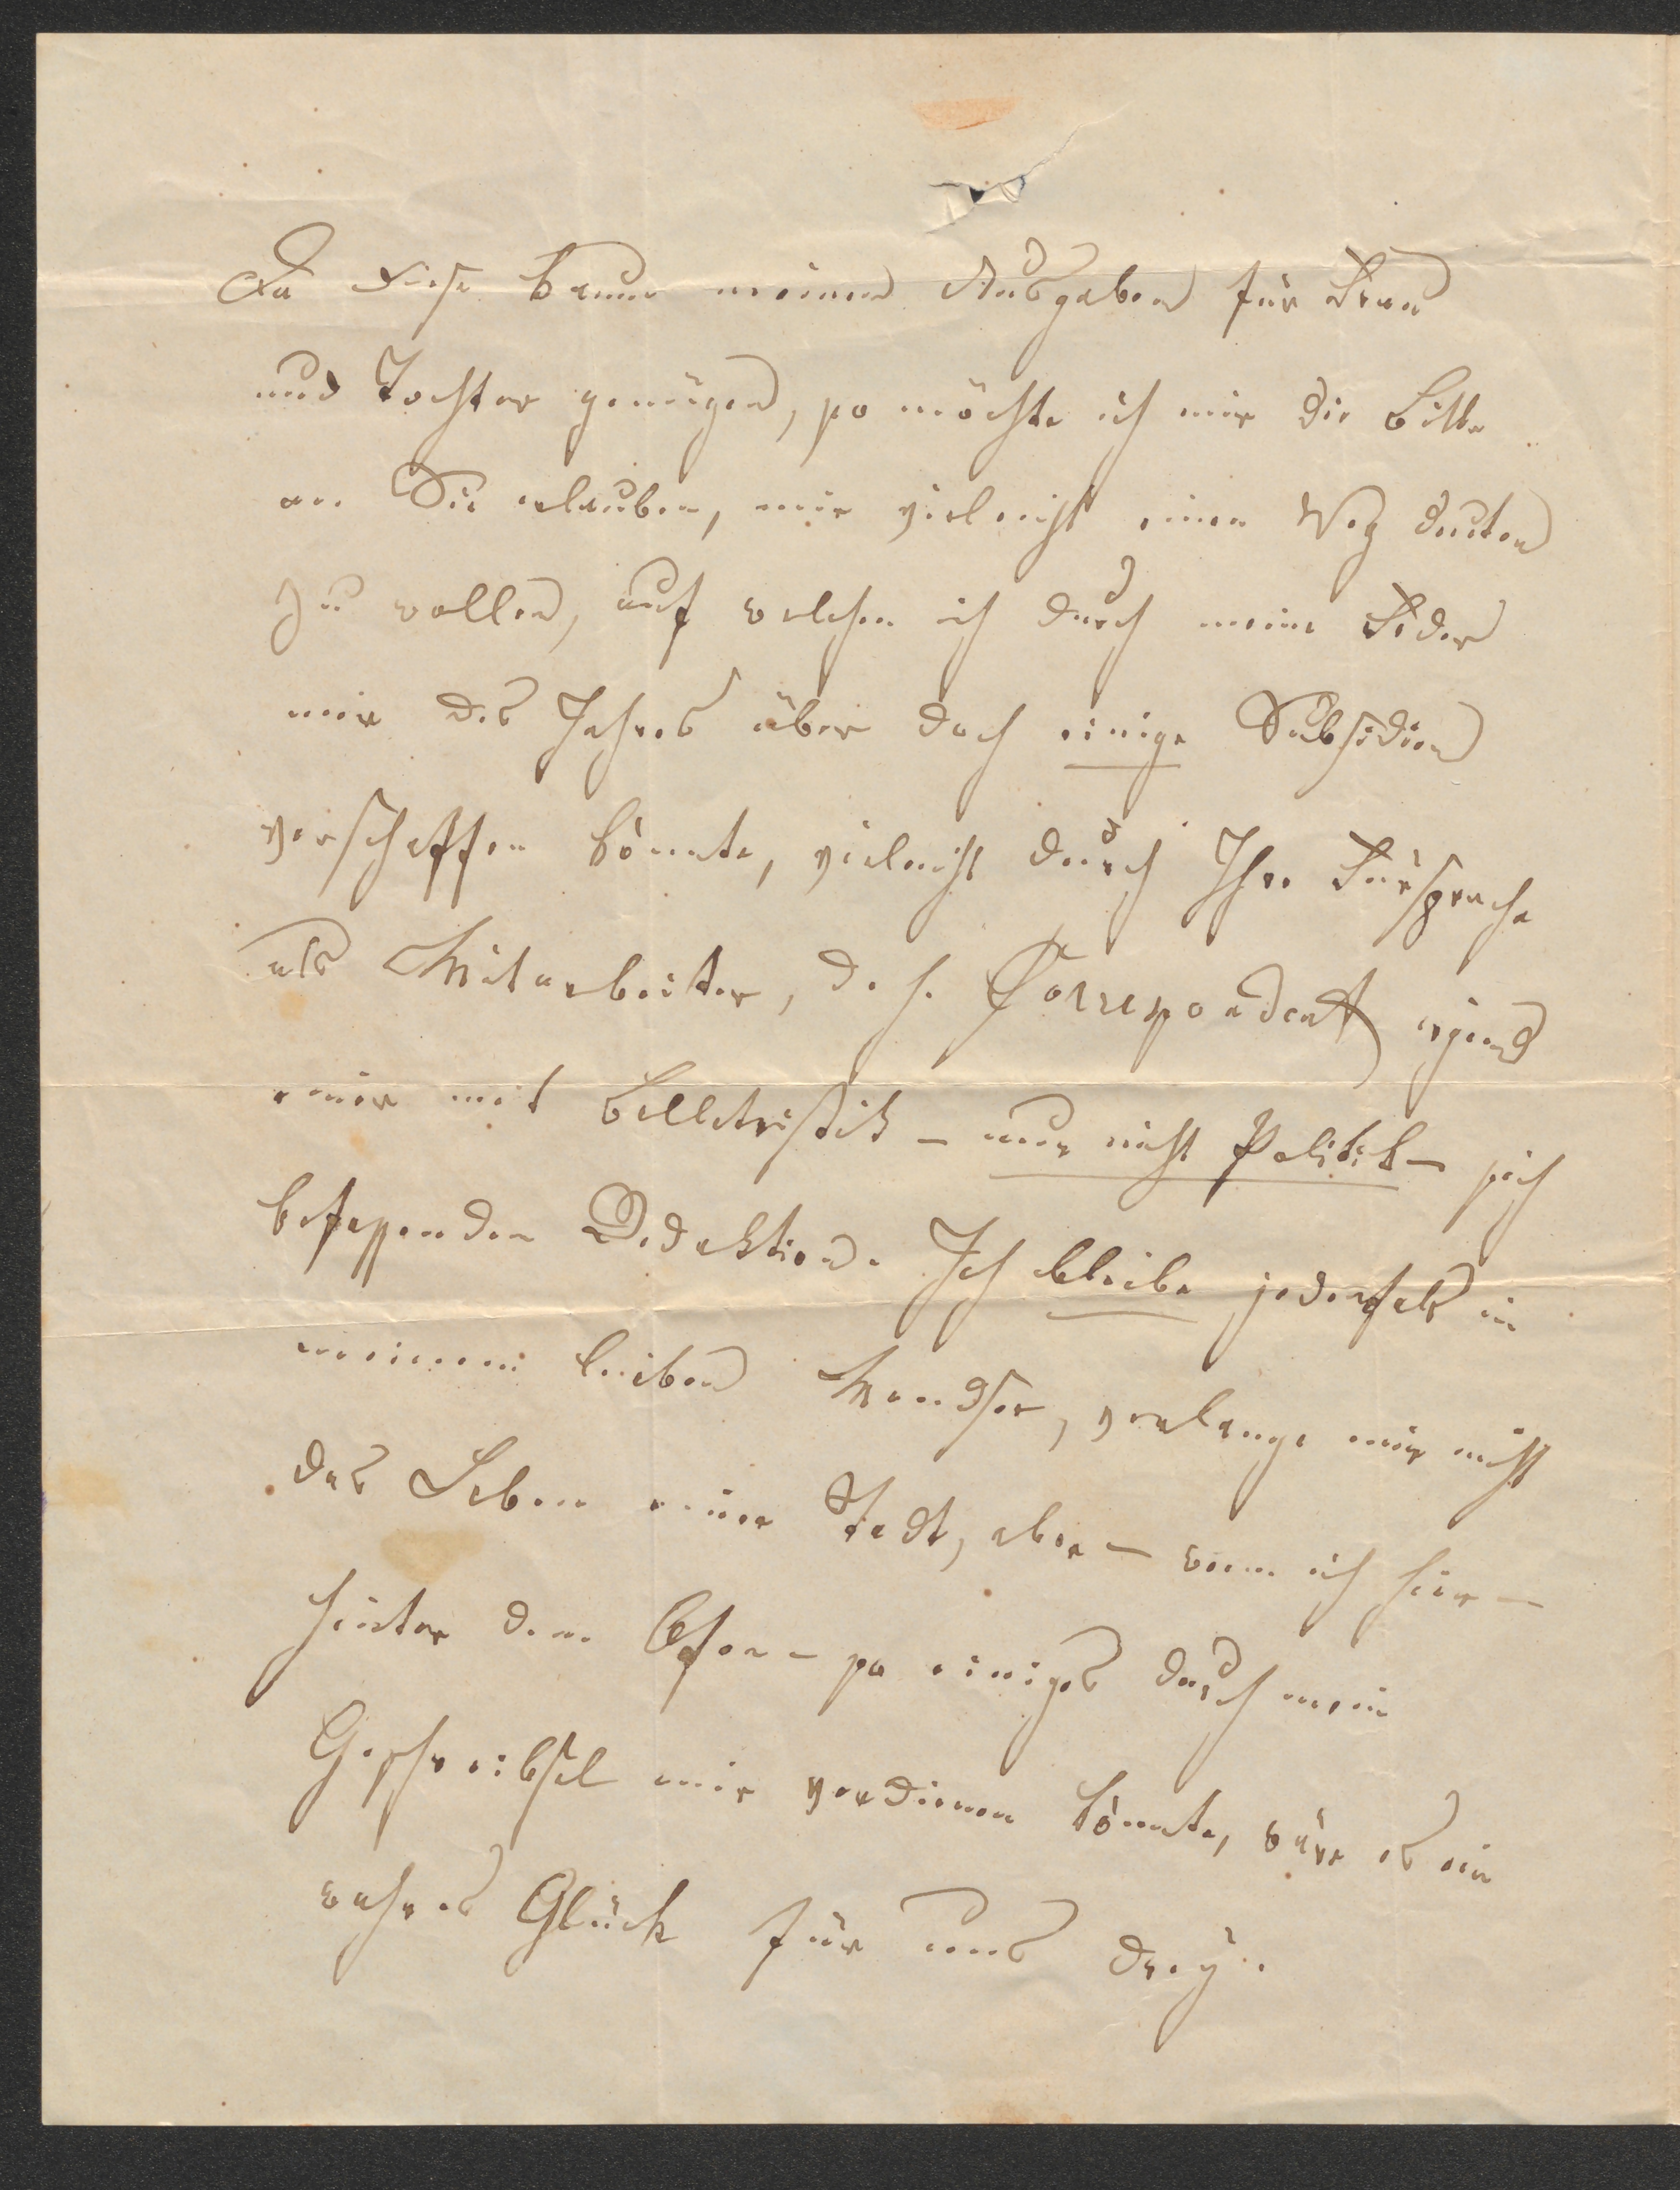 Da diese kaum meinen Ausgaben für Frau
und Tochter genügen, so möchte ich mir die Bitte
an Sie erlauben, mir vieleicht einen Weg deuten
zu wollen, auf welchen ich durch meine Feder
mir des Jahres über doch einige Subsidien
verschaffen könnte, vieleicht durch Ihre Fürsprache
als Mitarbeiter, d. h. Correspondent irgend
einer mit Belletristik – nur nicht Politik – sich
befassenden Redaktion. Ich bleibe jedenfals in
meinem lieben Mondsee, verlange mir nicht
das Leben einer Stadt, aber – wenn ich hier –
hinter dem Ofen – so einiges durch mein
Geschreibsel mir verdienen könnte, wäre es ein
wahres Glück für uns drey.